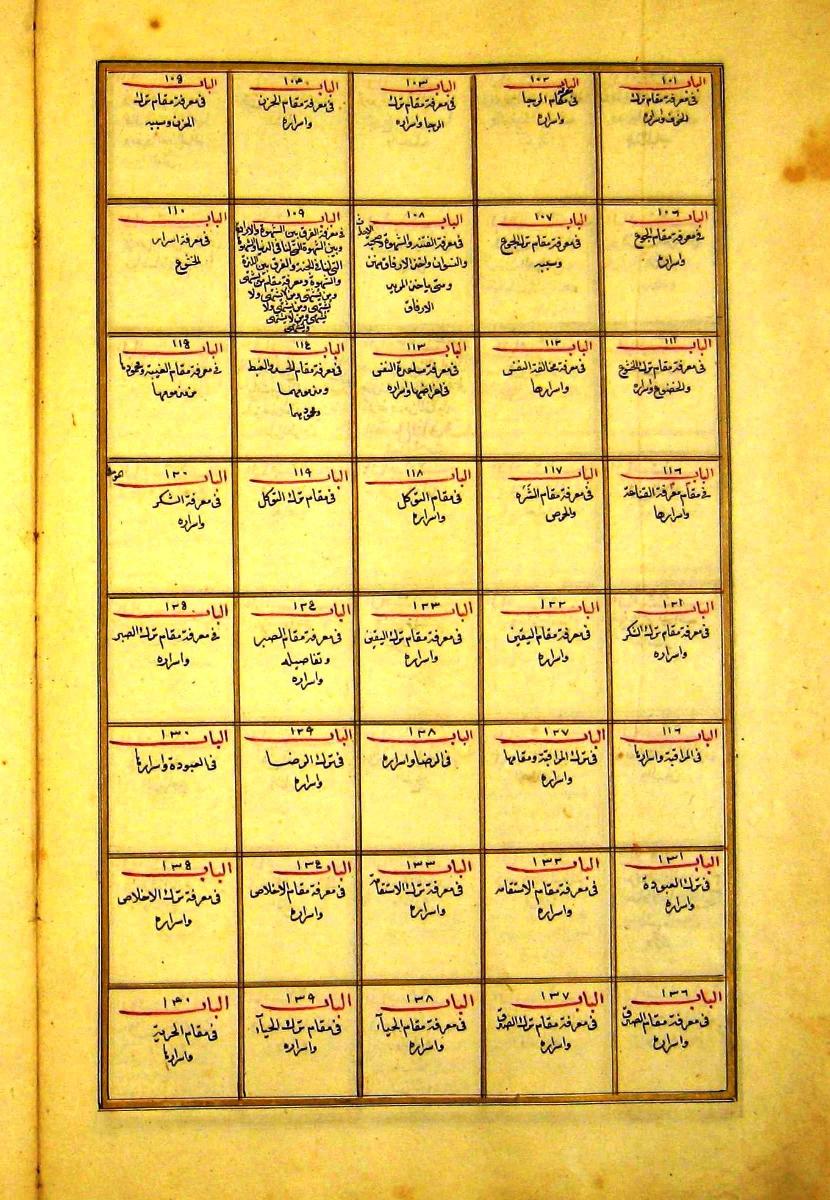 الباب ١٠١
فى معرفة مقام ترك
الخوف واسراره
الباب ١٠٢
فى معرفة مقام الرجا
واسراره
الباب ١٠٣
فى معرفة مقام ترك
الرجا واسراره
الباب ١٠٤
فى معرفة مقام الحزن
واسراره
الباب ١٠٥
فى معرفة مقام ترك
الحزن وسببه
الباب ١٠٦
فى معرفة مقام الجوع
واسراره
الباب ١٠٧
فى معرفة مقام ترك الجوع
وسببه
الباب ١٠٨
فى معرفة الفتنه والشهوة وصحبة الاحداث
والنسوان واخذ الارفاق منهن
ومتى ياخذ المريد
الارفاق
الباب ١٠٩
فى معرفة الفرق بين الشهوة والارادة
وبين الشهوة التى لنا فى الدنيا والشهوة
التى لنا فى الجنة والفرق بين اللذة
والشهوة ومعرفة مقام من يشتهى
ومن يشتهى ومن لا يشتهى ولا
يشتهى ومن يشتهى ولا
يشتهى ومن لا يشتهى
ويشتهى
الباب ١١٠
فى معرفة اسرار
الخشوع
الباب ١١١
فى معرفة مقام ترك الخشوع
والخضوع واسراره
الباب ١١٢
فى معرفة مخالفة النفس
واسرارها
الباب ١١٣
فى معرفة مساعدة النفس
فى اغراضها واسراره
الباب ١١٤
فى معرفة مقام الحسد والغبط
ومذمومهما
ومحمودهما
الباب ١١٥
فى معرفة مقام الغيبة ومحمودها
من مذمومها
الباب ١١٦
فى مقام معرفة القناعة
واسرارها
الباب ١١٧
فى معرفة مقام الشره
والحرص
الباب ١١٨
فى مقام التوكل
واسراره
الباب ١١٩
فى مقام ترك التوكل
الباب ١٢٠
فى معرفة الشكر
واسراره
الباب ١٢١
فى معرفة مقام ترك الشكر
واسراره
الباب ١٢٢
فى معرفة مقام اليقين
واسراره
الباب ١٢٣
فى معرفة مقام ترك اليقين
واسراره
الباب ١٢٤
فى معرفة مقام الصبر
وتفاصيله
واسراره
الباب ١٢٥
فى معرفة مقام ترك الصبر
واسراره
الباب ١١٦
فى المراقبة واسرارها
الباب ١٢٧
فى ترك المراقبة ومقامها
واسراره
الباب ١٢٨
فى الرضا واسراره
الباب ١٢٩
فى ترك الرضا
واسراره
الباب ١٣٠
فى العبودة واسرارها
الباب ١٣١
فى ترك العبودة
واسراره
الباب ١٣٢
فى معرفة مقام الاستقامه
واسراره
الباب ١٣٣
فى معرفة ترك الاستقامة
واسراره
الباب ١٣٤
فى معرفة مقام الاخلاص
واسراره
الباب ١٣٥
فى معرفة ترك الاخلاص
واسراره
الباب ١٣٦
فى معرفة مقام الصدق
واسراره
الباب ١٣٧
فى معرفة مقام ترك الصدق
واسراره
الباب ١٣٨
فى معرفة مقام الحيآء
واسراره
الباب ١٣٩
فى مقام ترك الحيآء
واسراره
الباب ١٤٠
فى مقام الحرية
واسرارها